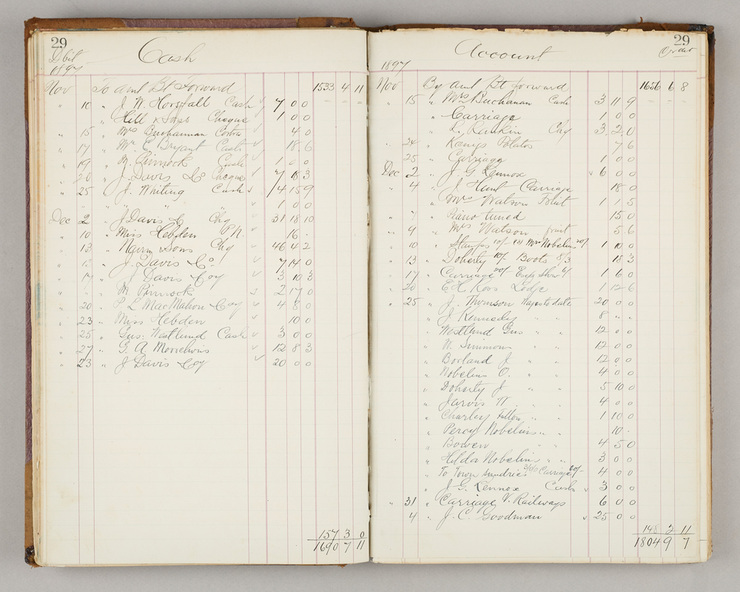 29
Cash
Debit
1897
Nov To amt Bt Forward 1533 4 11
10 " J. W. Horsfall Cash 7 0 0
" Hill & Sons Cheque 1 0 0
15 " Mrs Buchannan 4 0
" 17 " Mr E Bryant Cash 18 6
" 19 " M. Pinnock Cash 1 0 0
" 20 " J. Davis & Co Cheque 7 18 3
" 25 " J. Whiting Cash 4 15 9
" " " 1 0 0
Dec 2 " J Davis & Co Chq 31 18 10
" 10 " Miss Hebden P.N 16
" 13 " Navin & Sons Chq 46 4 2
" J. Davis & Co 7 14 0
" J Davis & Coy 3 10 3
" M Pinnock 2 17 0
" 20 " P. L MacMahon & Coy 4 8 0
" 23 " Miss Hebden 10 0
" 25 " Gus: Westlund Cash 3 0 0
" 27 " G. A 12 8 3
" 23 " J Davis & Coy 20 0 0
157 3 0
1690 7 11
29
Account
Credit
1897
Nov By amt Bt Forward 1656 6 8
" 15 " Mrs Buchanan Cash 3 11 9
" Carriage 1 0 0
" L. Rankin Chq 3 2 0
" " Kamps 7 6
" 25 " Carriage 1 0 0
Dec 2 " J G Lennox 6 0 0
" 4 " J. Hunt Carriage 18 0
" " Mrs Watson 1 1 5
" 7 " Piano tuned 15 0
" 9 " Mrs Watson fruit 5 6
" 10 " Stamps Wm Nobelius 1 10 0
" 13 " Doherty Boots 8/3 18 3
" 17 " Carriage 1 6 0
" 20 " E K Ross Lodge
" 25 " J. Thomson Wages to date 20 0 0
" J Kennedy " 8
" Westlund Gus " " 12 0 0
" W. Simmons " " 12 0 0
" Borland J. " " 12 0 0
" Nobelius O. " " 4 0 0
" Doherty J " " 5 10 0
" Jarvis W. " " 4 0 0
" Charley " " 1 10 0
" Percy Nobelius " " 10
" Bowen " " 4 5 0
" Hilda Nobelius " " 3 0 0
" To Town sundries Carriage 4 0 0
" J. G. Lennox Cash 3 0 0
" 31 " Carriage V. Railways 6 0 0
" 4 " J. C. Goodman 25 0 0
148 2 11
1804 9 7